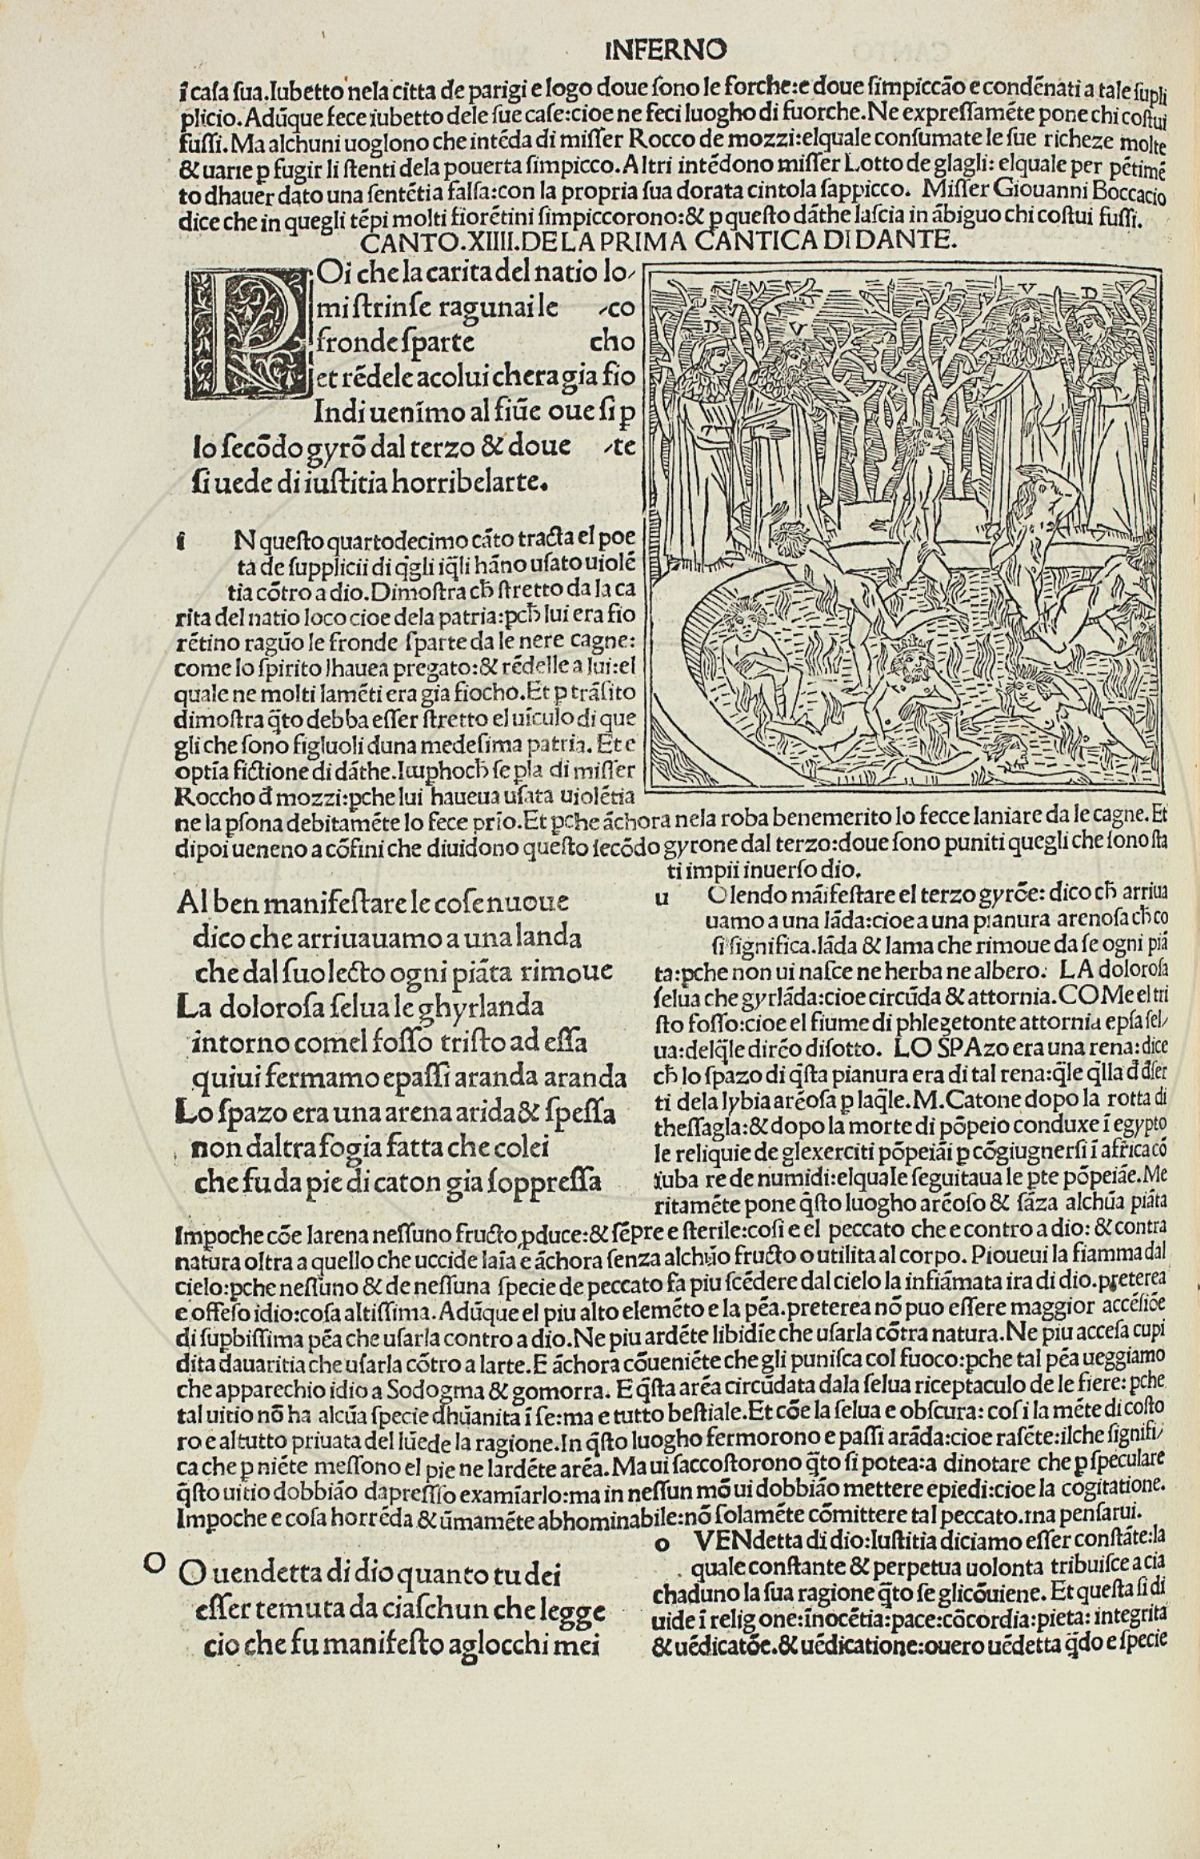 INFERNO
ī casa sua.Iubetto nela citta de parigi e logo doue sono le forche:e doue simpiccāo e condēnati a tale supli
plicio.Adūque fece iubetto dele sue case:cioe ne feci luogho di fuorche.Ne expressamēte pone chi costui
fussi.Ma alchuni uoglono che intēda di misser Rocco de mozzi:elquale consumate le sue richeze molte
& uarie p fugir li stenti dela pouerta simpicco.Altri intēdono misser Lotto de glagli: elquale per pētimē
to dhauer dato una sentētia falsa:con la propria sua dorata cintola sappicco. Misser Giouanni Boccacio
dice che in quegli tēpi molti fiorētini simpiccorono:& p questo dāthe lascia in ābiguo chi costui fussi.
CANTO.XIIII.DE LA PRIMA CANTICA DI DANTE.
POi che la carita del natio lo-
mi strinse ragunai le -co
fronde sparte cho
et rēdele a colui chera gia fio
Indi uenimo al fiūe oue si p
lo secōdo gyrō dal terzo & doue -te
si uede di iustitia horribelarte.
D V V D
i N questo quartodecimo cāto tracta el poe
ta de supplicii di q̄gli iq̄li hāno usato uiolē
tia cōtro a dio.Dimostra ch̄ stretto da la ca
rita del natio loco cioe dela patria:pch̄ lui era fio
rētino ragūo le fronde sparte da le nere cagne:
come lo spirito lhauea pregato:& rēdelle a lui:el
quale ne molti lamēti era gia fiocho.Et p trāsito
dimostra q̄to debba esser stretto el uīculo di que
gli che sono figluoli duna medesima patria. Et e
optīa fictione di dāthe.Imphoch̄ se pla di misser
Roccho đ mozzi:pche lui haueua usata uiolētia
ne la psona debitamēte lo fece prīo.Et pche āchora nela roba benemerito lo fecce laniare da le cagne.Et
dipoi ueneno a cōfini che diuidono questo secōdo gyrone dal terzo:doue sono puniti quegli che sono sta
ti impii inuerso dio.
Al ben manifestare le cose nuoue
dico che arriuauamo a una landa
che dal suo lecto ogni piāta rimoue
La dolorosa selua le ghyrlanda
intorno comel fosso tristo ad essa
quiui fermamo e passi aranda aranda
Lo spazo era una arena arida & spessa
non daltra fogia fatta che colei
che fu da pie di caton gia soppressa
u Olendo māifestare el terzo gyrōe: dico ch̄ arriua
uamo a una lāda:cioe a una pianura arenosa ch̄ co
si significa.lāda & lama che rimoue da se ogni piā
ta:pche non ui nasce ne herba ne albero. LA dolorosa
selua che gyrlāda:cioe circūda & attornia.COMe el tri
sto fosso:cioe el fiume di phlegetonte attornia epsa sel-
ua:delq̄le dirēo disotto. LO SPAzo era una rena:dice
ch̄ lo spazo di q̄sta pianura era di tal rena:q̄le q̄lla đ đser
ti dela lybia arēosa p laq̄le.M.Catone dopo la rotta di
thessagla:& dopo la morte di pōpeio conduxe ī egypto
le reliquie de glexerciti pōpeiāi p cōgiugnersi ī africa cō
iuba re de numidi:elquale seguitaua le pte pōpeiāe.Me
ritamēte pone q̄sto luogho arēoso & sāza alchūa piāta
Impoche cōe larena nessuno fructo pduce:& sēpre e sterile:cosi e el peccato che e contro a dio: & contra
natura oltra a quello che uccide laīa e āchora senza alchūo fructo o utilita al corpo. Pioueui la fiamma dal
cielo:pche nessuno & de nessuna specie de peccato fa piu scēdere dal cielo la infiāmata ira di dio.preterea
e offeso idio:cosa altissima.Adūque el piu alto elemēto e la pēa.preterea nō puo essere maggior accēsiōe
di supbissima pēa che usarla contro a dio.Ne piu ardēte libidīe che usarla cōtra natura.Ne piu accesa cupi
dita dauaritia che usarla cōtro a larte.E āchora cōueniēte che gli punisca col fuoco:pche tal pēa ueggiamo
che apparechio idio a Sodogma & gomorra. E q̄sta arēa circūdata dala selua riceptaculo de le fiere: pche
tal uitio nō ha alcūa specie dhūanita ī se:ma e tutto bestiale.Et cōe la selua e obscura: cosi la mēte di costo
ro e al tutto priuata del lūede la ragione.In q̄sto luogho fermorono e passi arāda:cioe rasēte:ilche signifi-
ca che p niēte messono el pie ne lardēte arēa.Ma ui saccostorono q̄to si potea:a dinotare che p speculare
q̄sto uitio dobbiāo dapressso examīarlo:ma in nessun mō ui dobbiāo mettere e piedi:cioe la cogitatione.
Impoche e cosa horrēda & ūmamēte abhominabile:nō solamēte cōmittere tal peccato.ma pensarui.
O O uendetta di dio quanto tu dei
esser temuta da ciaschun che legge
cio che fu manifesto aglocchi mei
o VENdetta di dio:Iustitia diciamo esser constāte:la
quale constante & perpetua uolonta tribuisce a cia
chaduno la sua ragione q̄to se gli cōuiene. Et questa si di
uide ī relig one:īnocētia:pace:cōcordia:pieta: integrita
& uēdicatōe.& uēdicatione:ouero uēdetta q̄do e specie